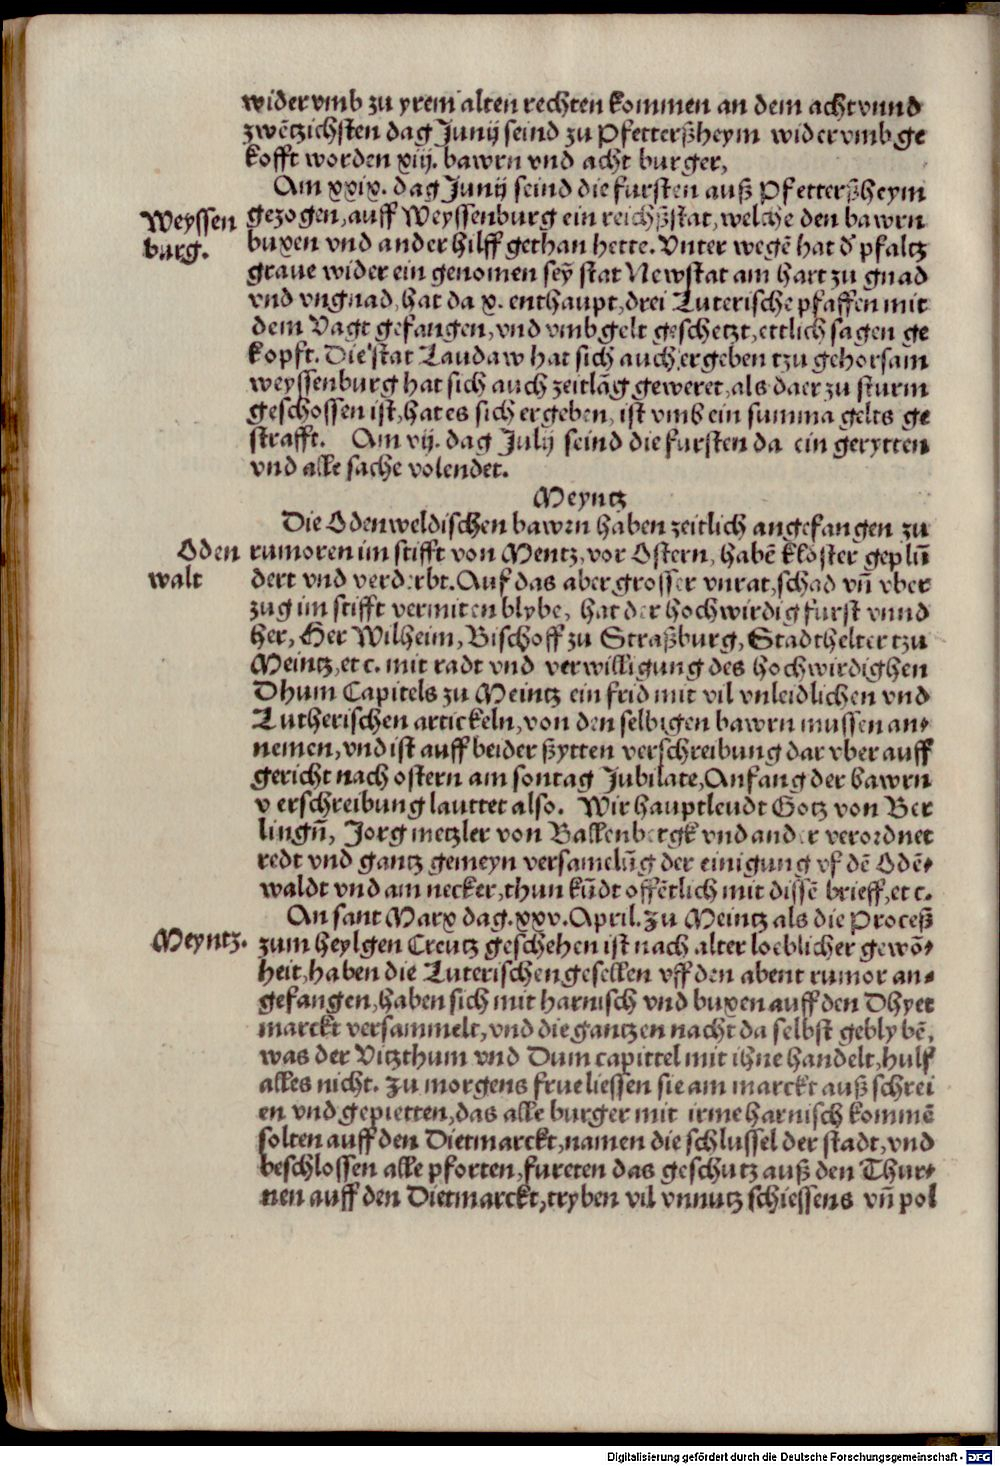 widervmb zu yrem alten rechten kommen an dem acht vnnd
zwẽtzichsten dag Junij seind zu Pfetterßheym widervmb ge
kofft worden xiij. bawrn vnd acht burger,
Am xxix. dag Junij seind die fursten auß Pfetterßheym
Weyssen
burg.
gezogen, auff Weyssenburg ein reichßstat, welche den bawrn
buxen vnd ander hilff gethan hette. Vnter wegẽ hat đ pfaltz
graue wider ein genomen seỹ stat Newstat am hart zu gnad
vnd vngnad, hat da x. enthaupt, drei Luterische pfaffen mit
dem Vagt gefangen, vnd vmb gelt geschetzt, ettlich sagen ge
kopft. Die stat Laudaw hat sich auch ergeben tzu gehorsam
weyssenburg hat sich auch zeitlãg geweret, als daer zu sturm
geschossen ist, hat es sich ergeben, ist vmb ein summa gelts ge
strafft. Am vij. dag Julij seind die fursten da ein gerytten
vnd alle sache volendet.
Meyntz
Die Odenweldischen bawrn haben zeitlich angefangen zu
Oden
walt
rumoren im stifft von Mentz, vor Ostern, habẽ kloster geplũ
dert vnd verderbt. Auf das aber grosser vnrat, schad vñ vber
zug im stifft vermiten blybe, hat der hochwirdig furst vnnd
her, Her Wilheim, Bischoff zu Straßburg, Stadthelter tzu
Meintz, et c. mit radt vnd verwilligung des hochwirdighen
Dhum Capitels zu Meintz ein frid mit vil vnleidlichen vnd
Lutherischen artickeln, von den selbigen bawrn mussen an-
nemen, vnd ist auff beider ßytten verschreibung dar vber auff
gericht nach ostern am sontag Jubilate, Anfang der bawrn
v erschreibung lauttet also. Wir hauptleudt Gotz von Ber
lingñ, Jorg metzler von Ballenbergk vnd ander verordnet
redt vnd gantz gemeyn versamelũg der einigung vf dẽ Odẽ-
waldt vnd am necker, thun kũdt offẽtlich mit dissẽ brieff, et c.
An sant Marx dag. xxv. April. zu Meintz als die Proceß
Meyntz.
zum heylgen Creutz geschehen ist nach alter loeblicher gewõ-
heit, haben die Luterischen gesellen vff den abent rumor an-
gefangen, haben sich mit harnisch vnd buxen auff den Dhyet
marckt versammelt, vnd die gantzen nacht da selbst geblybẽ,
was der Vitzthum vnd Dum capittel mit ihne handelt, hulf
alles nicht. Zu morgens frue liessen sie am marckt auß schrei
en vnd gepietten, das alle burger mit irme harnisch kommẽ
solten auff den Dietmarckt, namen die schlussel der stadt, vnd
beschlossen alle pforten, fureten das geschutz auß den Thur-
nen auff den Dietmarckt, tryben vil vnnutz schiessens vñ pol
Digitalisierung gefördert durch die Deutsche Forschungsgemeinschaft - DFG